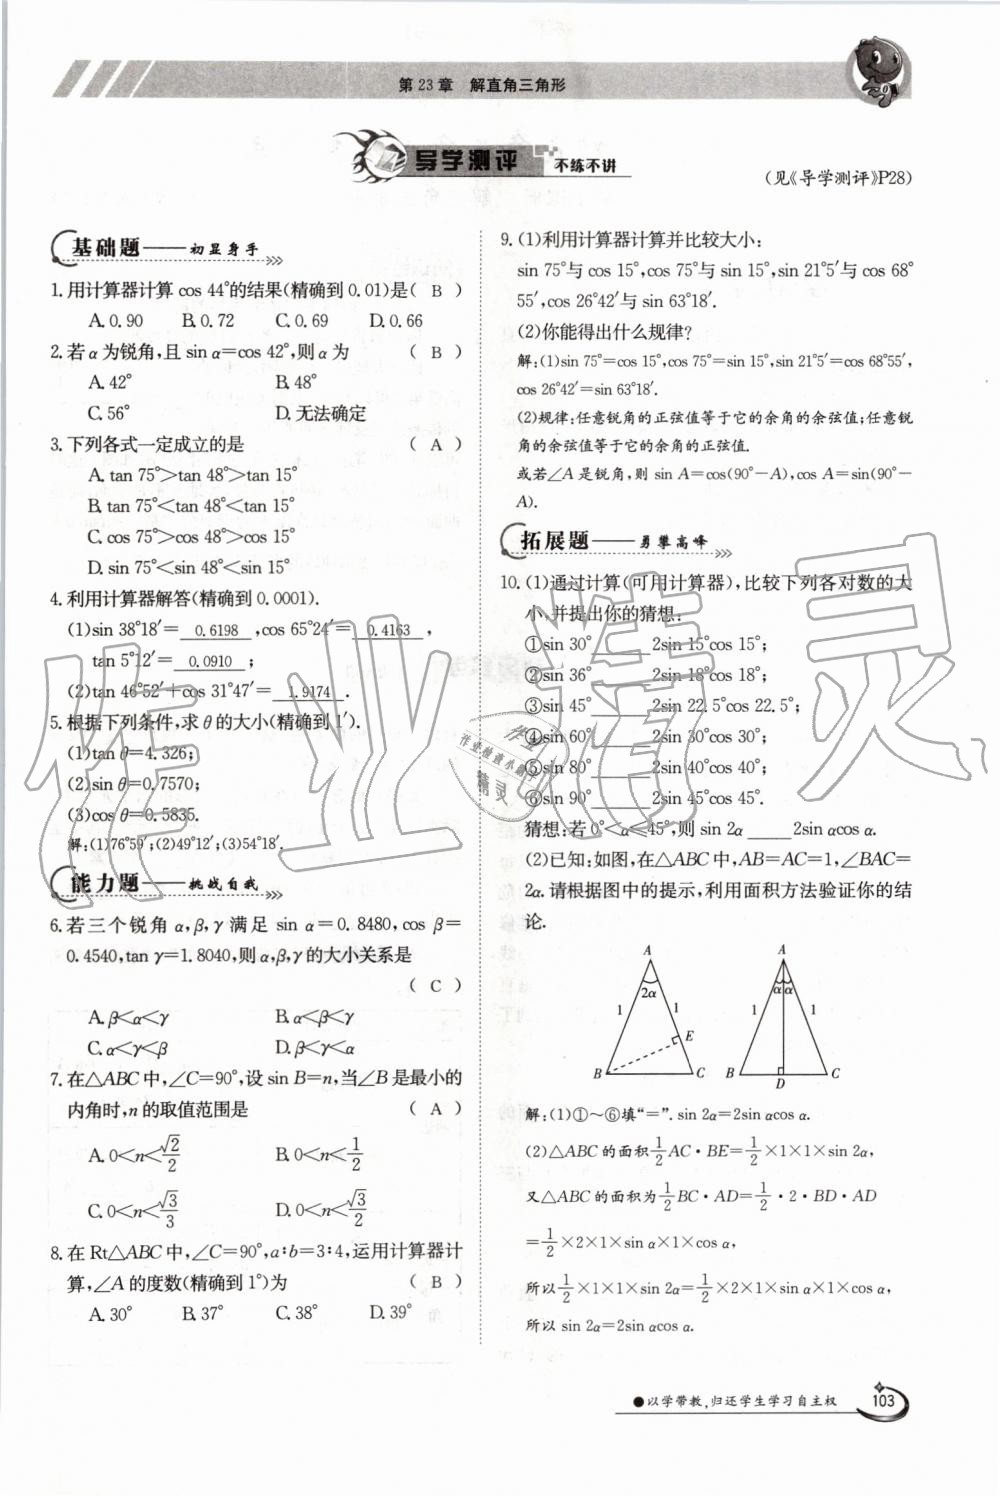 第23章 解直角三角形
导学测评 不练不讲
(见《导学测评》P28)
基础题——初显身手
1.用计算器计算 cos 44°的结果(精确到0.01)是( B )
A.0.90 B.0.72 C.0.69 D.0.66
2.若α为锐角,且 sin α=cos 42°,则α为 ( B )
A.42° B.48°
C.56° D.无法确定
3.下列各式一定成立的是 ( A )
A.tan 75°>tan 48°>tan 15°
B.tan 75°<tan 48°<tan 15°
C.cos 75°>cos 48°>cos 15°
D.sin 75°<sin 48°<sin 15°
4.利用计算器解答(精确到0.0001).
(1)sin 38°18′= 0.6198 ,cos 65°24′= 0.4163 ,
tan 5°12′= 0.0910 ;
(2)tan 46°52′+cos 31°47′= 1.9174 .
5.根据下列条件,求θ的大小(精确到1′).
(1)tan θ=4.326;
(2)sin θ=0.7570;
(3)cos θ=0.5835.
解:(1)76°59′;(2)49°12′;(3)54°18′.
能力题——挑战自我
6.若三个锐角 α,β,γ 满足 sin α=0.8480,cos β=
0.4540,tan γ=1.8040,则α,β,γ的大小关系是
( C )
A.β<α<γ B.α<β<γ
C.α<γ<β D.β<γ<α
7.在△ABC中,∠C=90°,设 sin B=n,当∠B是最小的
内角时,n的取值范围是 ( A )
A.0<n<√2/2 B.0<n<1/2
C.0<n<√3/3 D.0<n<√3/2
8.在Rt△ABC中,∠C=90°,a∶b=3∶4,运用计算器计
算,∠A的度数(精确到1°)为 ( B )
A.30° B.37° C.38° D.39°
9.(1)利用计算器计算并比较大小:
sin 75°与 cos 15°,cos 75°与 sin 15°,sin 21°5′与 cos 68°
55′,cos 26°42′与 sin 63°18′.
(2)你能得出什么规律?
解:(1)sin 75°=cos 15°,cos 75°=sin 15°,sin 21°5′=cos 68°55′,
cos 26°42′=sin 63°18′.
(2)规律:任意锐角的正弦值等于它的余角的余弦值;任意锐
角的余弦值等于它的余角的正弦值.
或若∠A是锐角,则 sin A=cos(90°−A),cos A=sin(90°−
A).
拓展题——勇攀高峰
10.(1)通过计算(可用计算器),比较下列各对数的大
小,并提出你的猜想:
①sin 30°______2sin 15°cos 15°;
②sin 36°______2sin 18°cos 18°;
③sin 45°______2sin 22.5°cos 22.5°;
④sin 60°______2sin 30°cos 30°;
⑤sin 80°______2sin 40°cos 40°;
⑥sin 90°______2sin 45°cos 45°.
猜想:若0°<α≤45°,则 sin 2α______2sin αcos α.
(2)已知:如图,在△ABC中,AB=AC=1,∠BAC=
2α.请根据图中的提示,利用面积方法验证你的结
论.
A A
2α α α
1 1 1 1
E
B C B D C
解:(1)①~⑥填“=”.sin 2α=2sin αcos α.
(2)△ABC的面积1/2AC·BE=1/2×1×1×sin 2α,
又△ABC的面积为1/2BC·AD=1/2·2·BD·AD
=1/2×2×1×sin α×1×cos α,
所以1/2×1×1×sin 2α=1/2×2×1×sin α×1×cos α,
所以 sin 2α=2sin αcos α.
●以学带教,归还学生学习自主权
103
作业精灵
作业
作业检查小助手
精灵